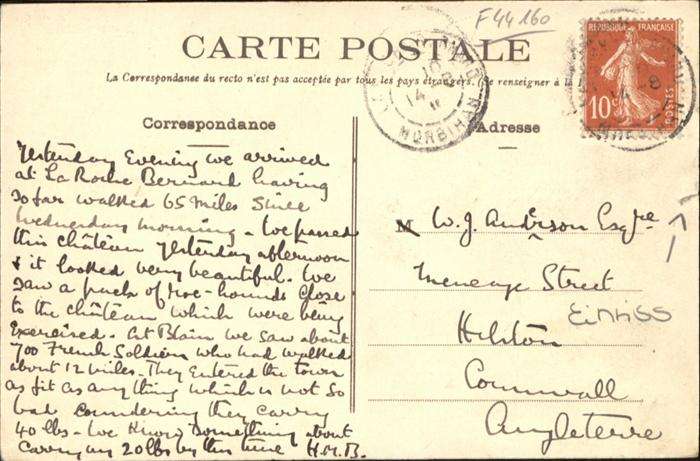 F44160
CARTE POSTALE
La Correspondance du recto n'est pas acceptée par tous les pays étrangers. (Se renseigner à la
RÉPUBLIQUE FRANÇAISE
10c
POSTES
14
MORBIHAN
Correspondance
Adresse
Yesterday Evening we arrived
at La Roche Bernard having
so far walked 65 miles since
Wednesday morning - We passed
this château yesterday afternoon
& it looked very beautiful. We
saw a pack of roe-hounds close
to the château which were being
Exercised. At Blain we saw about
700 French Soldiers who had walked
about 12 miles - They entered the town
as fit as anything which is not so
bad considering they carry
40 lbs - We know something about
carrying 20 lbs by this time H.M.B.
M W. J. Anderson Esqre
Meneage Street
Helston
Cornwall
Angleterre
Einriss